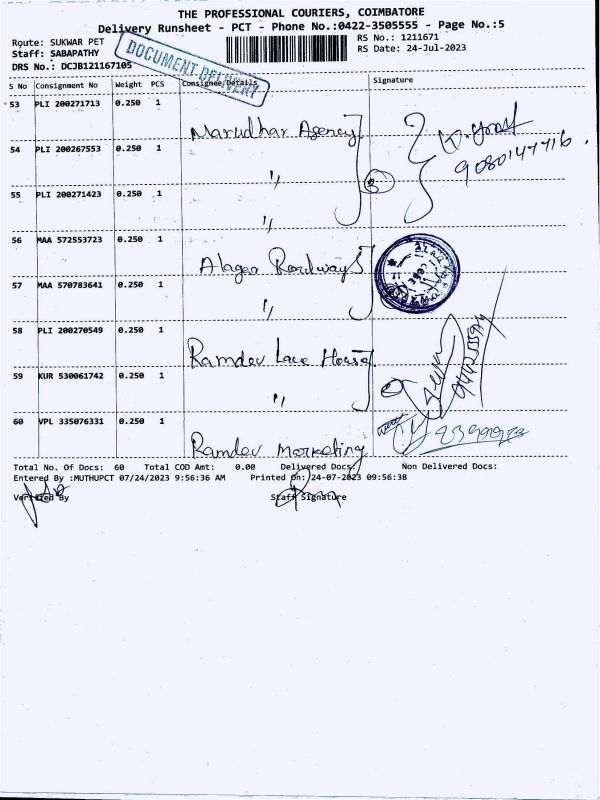 THE PROFESSIONAL COURIERS, COIMBATORE
Delivery Runsheet - PCT - Phone No.:0422-3505555 - Page No.:5
Route: SUKWAR PET
RS No.: 1211671
Staff: SABAPATHY
RS Date: 24-Jul-2023
DRS No.: DCJB121167105
DOCUMENT DELIVERY
S No Consignment No Weight PCS Consignee/Details Signature
53 PLI 200271713 0.250 1
Marudhar Agency
9080147716
54 PLI 200267553 0.250 1
"
3
55 PLI 200271423 0.250 1
"
56 MAA 572553723 0.250 1
Alagar Roadways
57 MAA 570783641 0.250 1
"
58 PLI 200270549 0.250 1
Ramdev Lace House
59 KUR 530061742 0.250 1
"
60 VPL 335076331 0.250 1
Ramdev Marketing
Total No. Of Docs: 60 Total COD Amt: 0.00 Delivered Docs: Non Delivered Docs:
Entered By :MUTHUPCT 07/24/2023 9:56:36 AM Printed On: 24-07-2023 09:56:38
Verified By Staff Signature